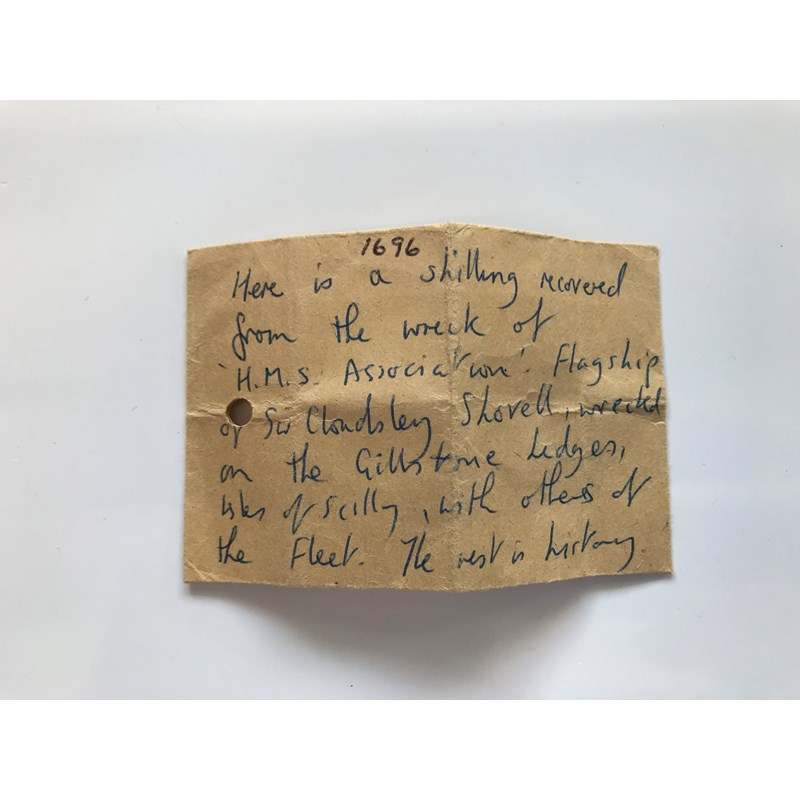 1696
Here is a shilling recovered
from the wreck of
'H.M.S. Association'. Flagship
of Sir Cloudsley Shovell, wrecked
on the Gillstone Ledges,
Isles of Scilly, with others of
the Fleet. The rest is history.